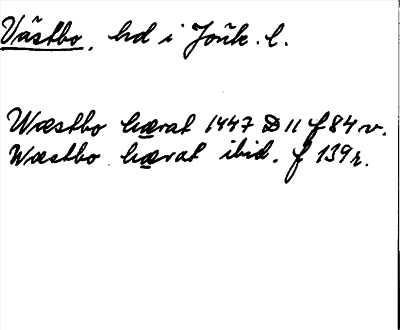 Västbo, hd i Jönk. l.
Wæstbo hærat 1447 D 11 f 84 v.
Wæstbo hærat ibid. f 139 r.